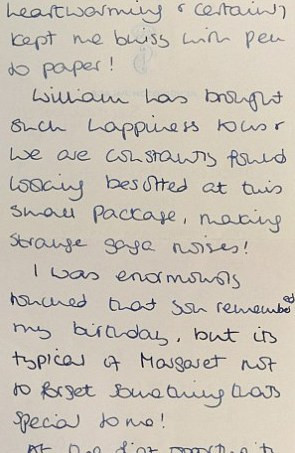 heartwarming & certainly
kept me busy with pen
to paper!
William has brought
such happiness to us &
we are constantly found
looking besotted at this
small package, making
strange gaga noises!
I was enormously
touched that you remembered
my birthday, but its
typical of Margaret not
to forget something thats
special to me!
At the first opportunity